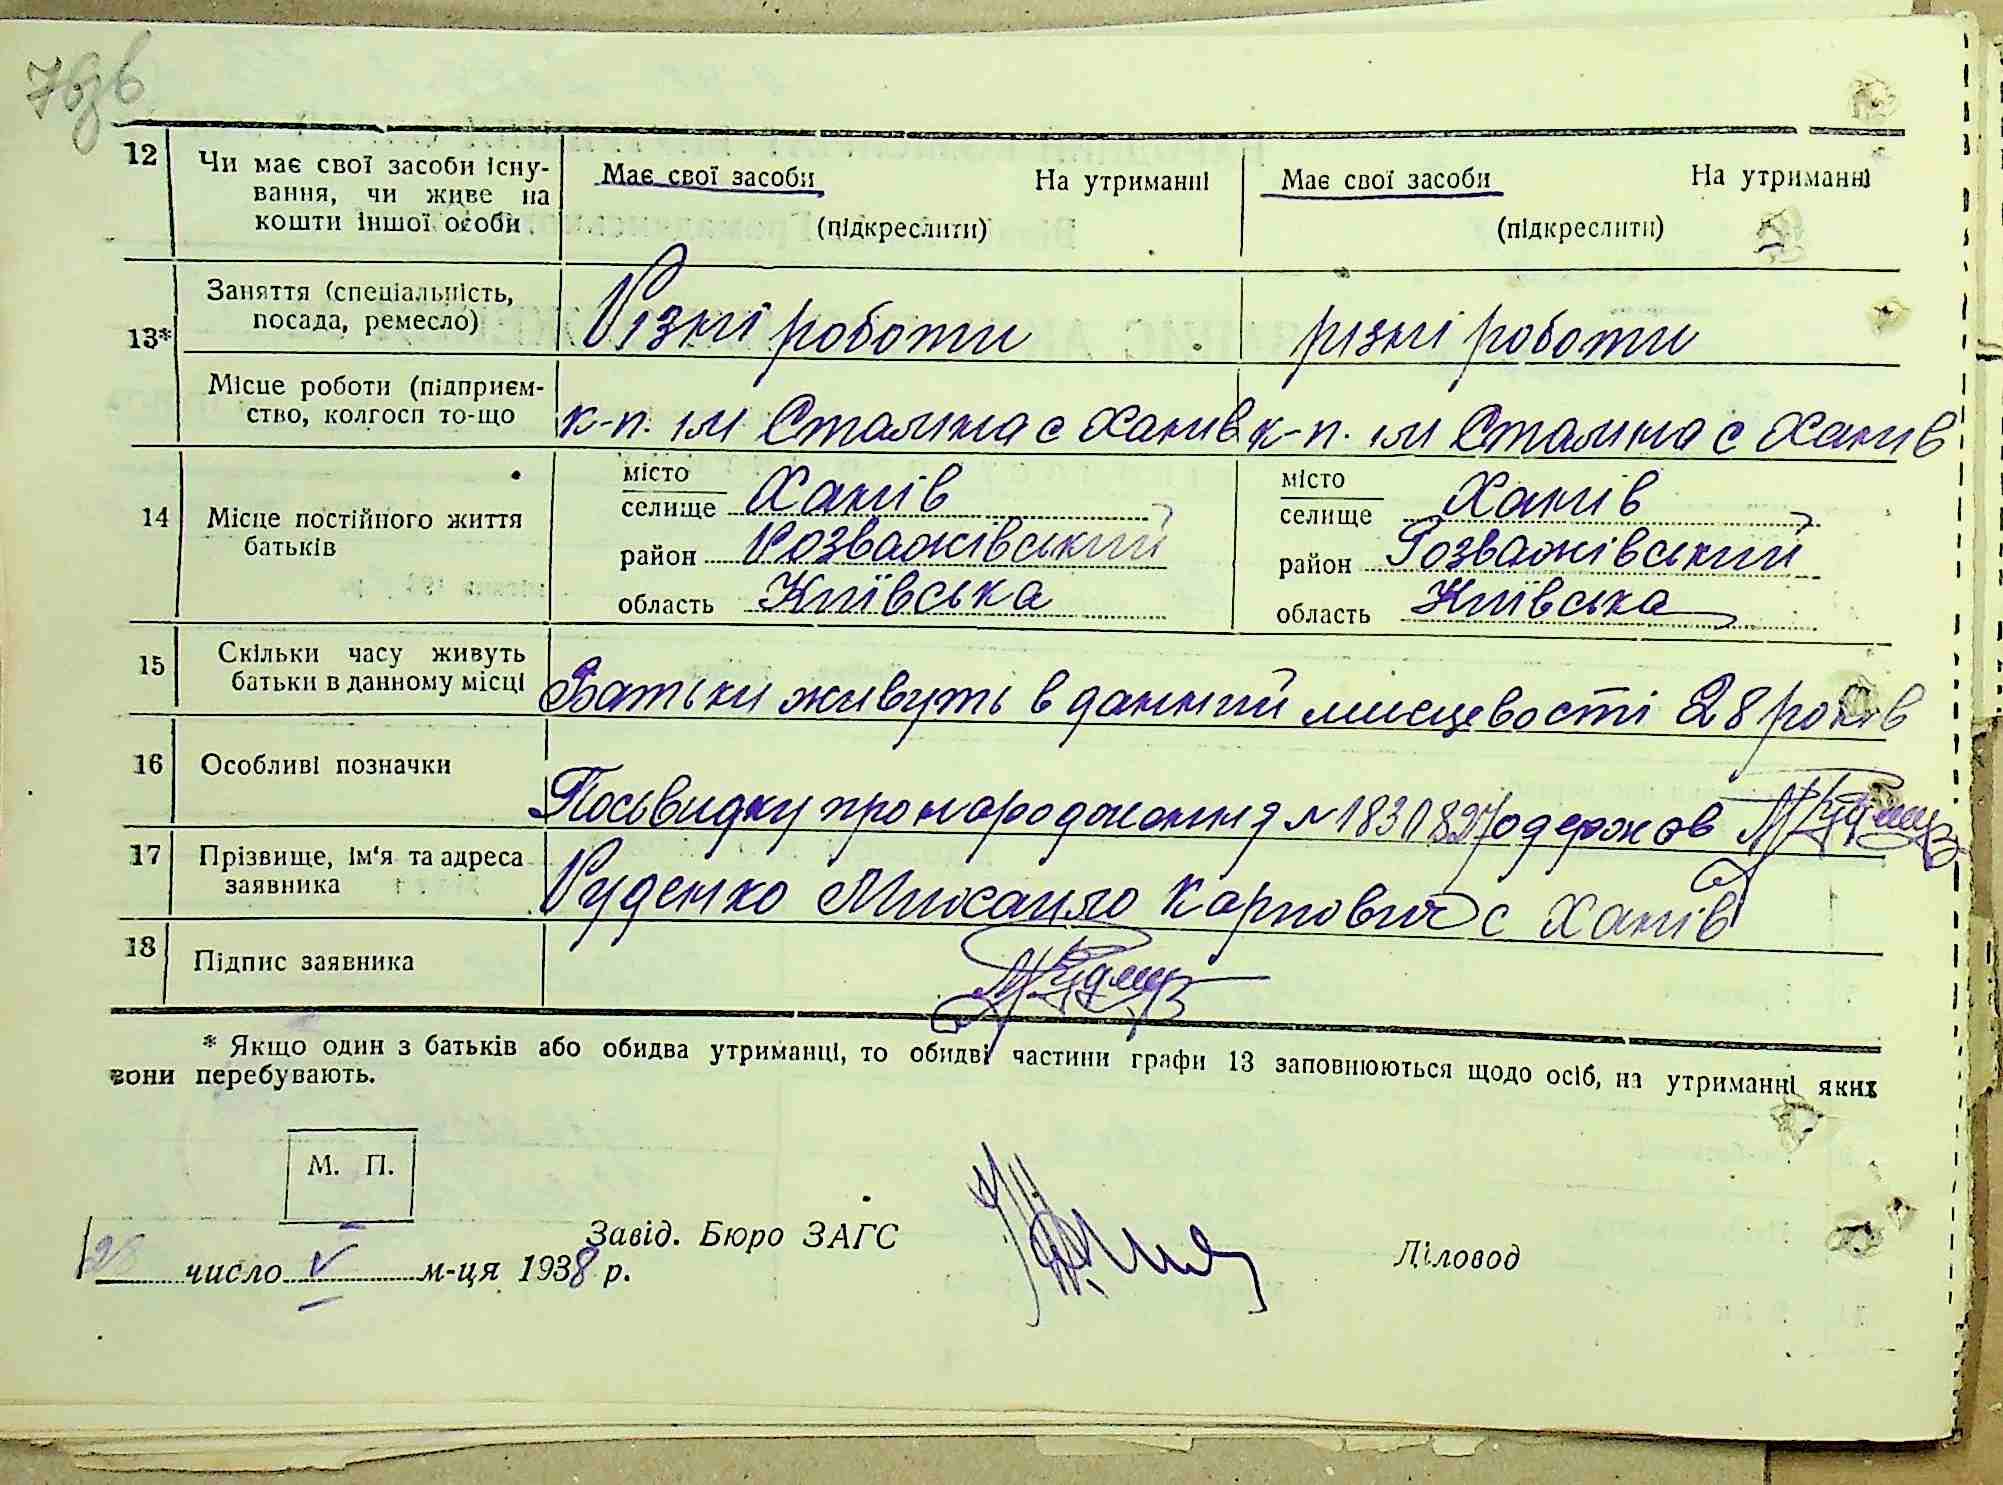 7зв
12 Чи має свої засоби існу-
вання, чи живе на
кошти іншої особи
Має свої засоби На утриманні
(підкреслити)
Має свої засоби На утриманні
(підкреслити)
13*
Заняття (спеціальність,
посада, ремесло)
Різні роботи
різні роботи
Місце роботи (підприєм-
ство, колгосп то-що
к-п. ім Сталина с Ханів
к-п. ім Сталина с Ханів
14 Місце постійного життя
батьків
місто
селище Ханів
район Розважівський
область Київська
місто
селище Ханів
район Розважівський
область Київська
15 Скільки часу живуть
батьки в данному місці
Батьки живуть в данний мисцевості 28 років
16 Особливі позначки
Посьвидку про народження N 1831827 одержав
17 Прізвище, ім'я та адреса
заявника
Руденко Михайло Карпович с Ханів
18 Підпис заявника
* Якщо один з батьків або обидва утриманці, то обидві частини графи 13 заповнюються щодо осіб, на утриманні яких
вони перебувають.
М. П.
Завід. Бюро ЗАГС
Діловод
28 число V м-ця 1938 р.